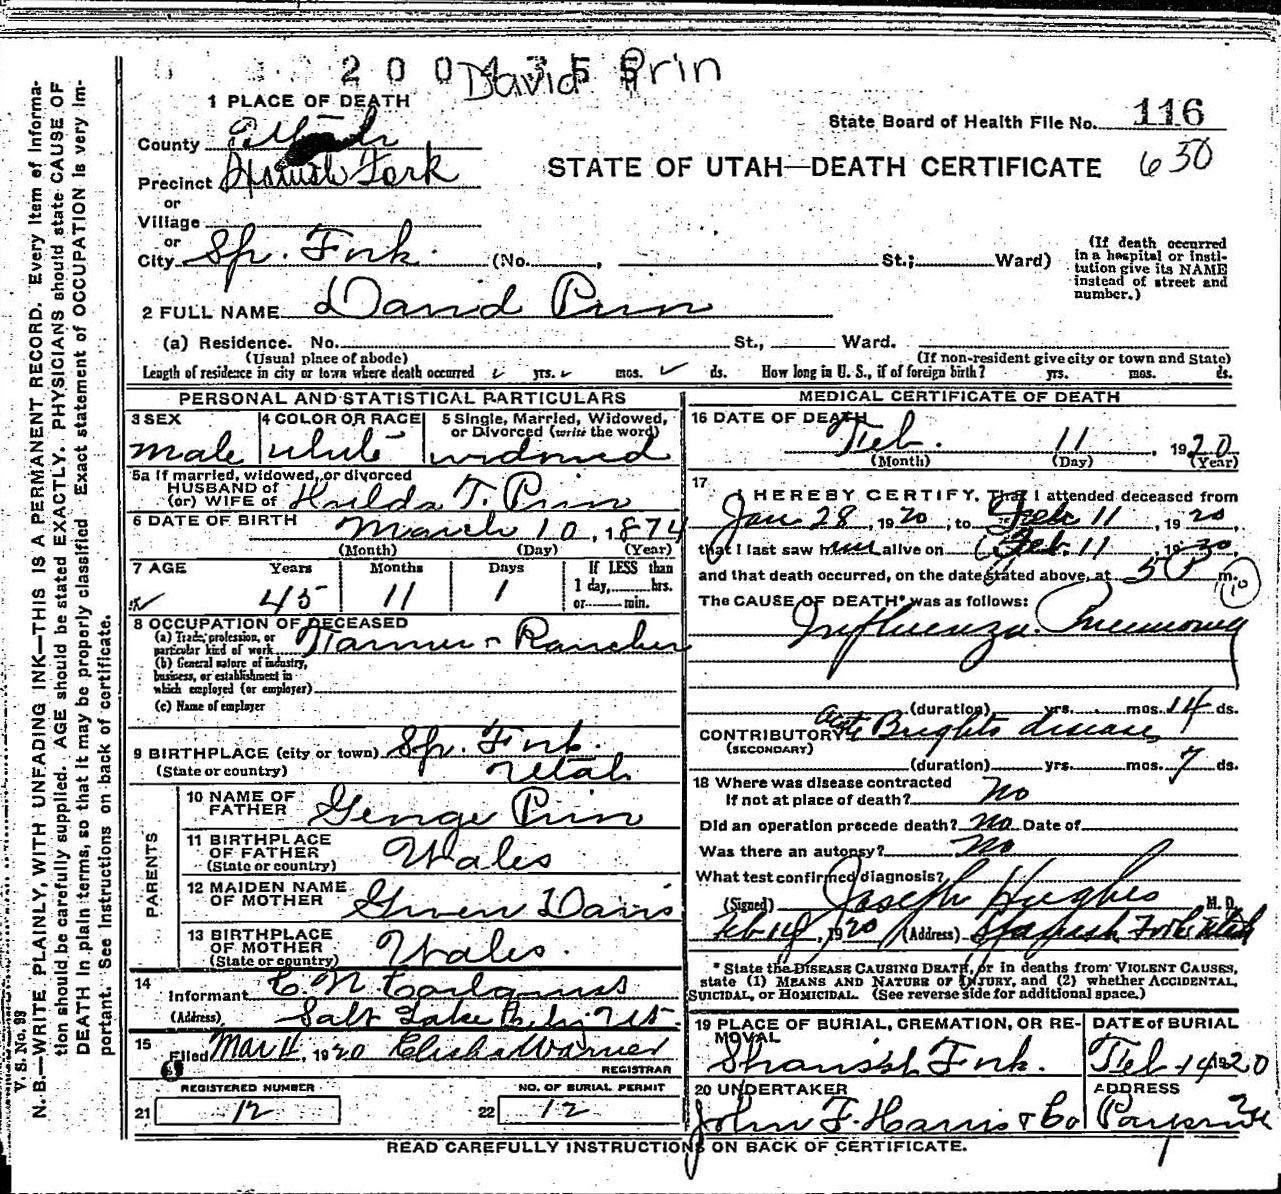 2004355
David Prin
1 PLACE OF DEATH
County Utah
State Board of Health File No. 116
650
Precinct Spanish Fork
STATE OF UTAH—DEATH CERTIFICATE
or
Village
or
City Sp. Fork. (No. , St.; Ward)
(If death occurred in a hospital or institution give its NAME instead of street and number.)
2 FULL NAME David Prin
(a) Residence. No. St., Ward.
(Usual place of abode) (If non-resident give city or town and State)
Length of residence in city or town where death occurred yrs. mos. ds. How long in U. S., if of foreign birth? yrs. mos. ds.
PERSONAL AND STATISTICAL PARTICULARS
3 SEX male
4 COLOR OR RACE white
5 Single, Married, Widowed, or Divorced (write the word) widowed
5a If married, widowed, or divorced
HUSBAND of
(or) WIFE of Hulda T. Prin
6 DATE OF BIRTH March 10, 1874
(Month) (Day) (Year)
7 AGE Years 45 Months 11 Days 1 If LESS than 1 day, hrs. or min.
8 OCCUPATION OF DECEASED
(a) Trade, profession, or particular kind of work Farmer - Rancher
(b) General nature of industry, business, or establishment in which employed (or employer)
(c) Name of employer
9 BIRTHPLACE (city or town) Sp. Fork.
(State or country) Utah
PARENTS
10 NAME OF FATHER George Prin
11 BIRTHPLACE OF FATHER (State or country) Wales
12 MAIDEN NAME OF MOTHER Gwen Davis
13 BIRTHPLACE OF MOTHER (State or country) Wales.
14
Informant C. N.
(Address) Salt Lake City Ut.
15
Filed Mar 4, 1920 Elisha Warner
REGISTRAR
REGISTERED NUMBER
21 12
NO. OF BURIAL PERMIT
22 12
MEDICAL CERTIFICATE OF DEATH
16 DATE OF DEATH
Feb. 11, 1920
(Month) (Day) (Year)
17
I HEREBY CERTIFY, That I attended deceased from
Jan 28, 1920, to Feb 11, 1920,
that I last saw him alive on Feb. 11, 1920,
and that death occurred, on the date stated above, at 5 P m.
10
The CAUSE OF DEATH* was as follows:
Influenza. Pneumonia
(duration) yrs. mos. 14 ds.
CONTRIBUTORY Acute Brights disease
(SECONDARY)
(duration) yrs. mos. 7 ds.
18 Where was disease contracted
If not at place of death? No
Did an operation precede death? No Date of
Was there an autopsy? No
What test confirmed diagnosis?
(Signed) Joseph Hughes M. D.
Feb 14, 1920 (Address) Spanish Fork Utah
* State the DISEASE CAUSING DEATH, or in deaths from VIOLENT CAUSES,
state (1) MEANS AND NATURE OF INJURY, and (2) whether ACCIDENTAL,
SUICIDAL, or HOMICIDAL. (See reverse side for additional space.)
19 PLACE OF BURIAL, CREMATION, OR REMOVAL
Spanish Fork.
DATE of BURIAL
Feb 14 1920
20 UNDERTAKER
John F. Harris & Co
ADDRESS
Payson Ut
READ CAREFULLY INSTRUCTIONS ON BACK OF CERTIFICATE.
V. S. No. 99
N. B.—WRITE PLAINLY, WITH UNFADING INK—THIS IS A PERMANENT RECORD. Every item of informa-
tion should be carefully supplied. AGE should be stated EXACTLY. PHYSICIANS should state CAUSE OF
DEATH in plain terms, so that it may be properly classified. Exact statement of OCCUPATION is very im-
portant. See instructions on back of certificate.